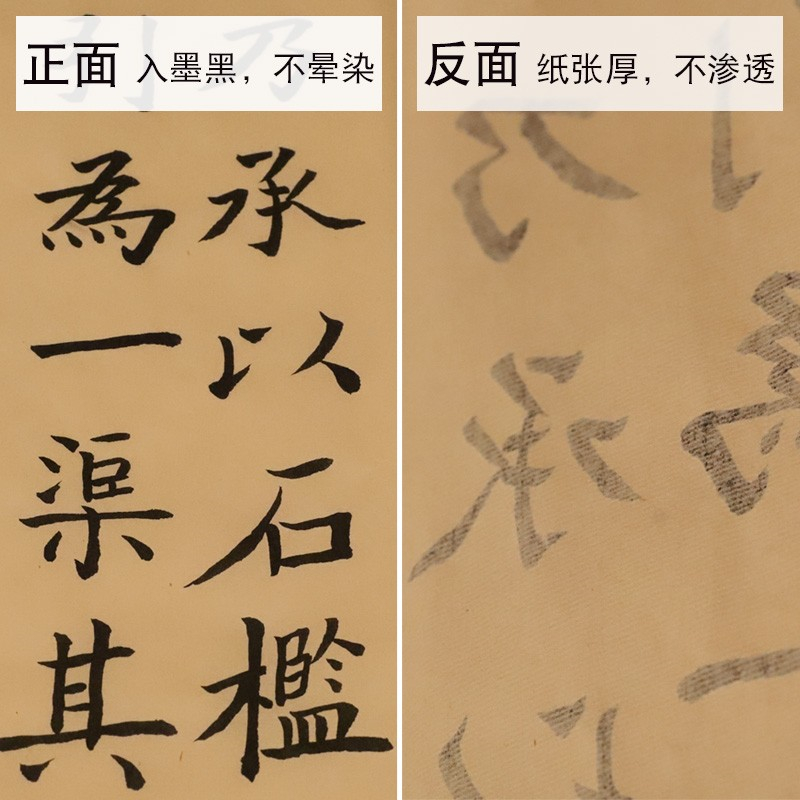 正面 入墨黑，不晕染
承以石檻
為一渠其
反面 纸张厚，不渗透